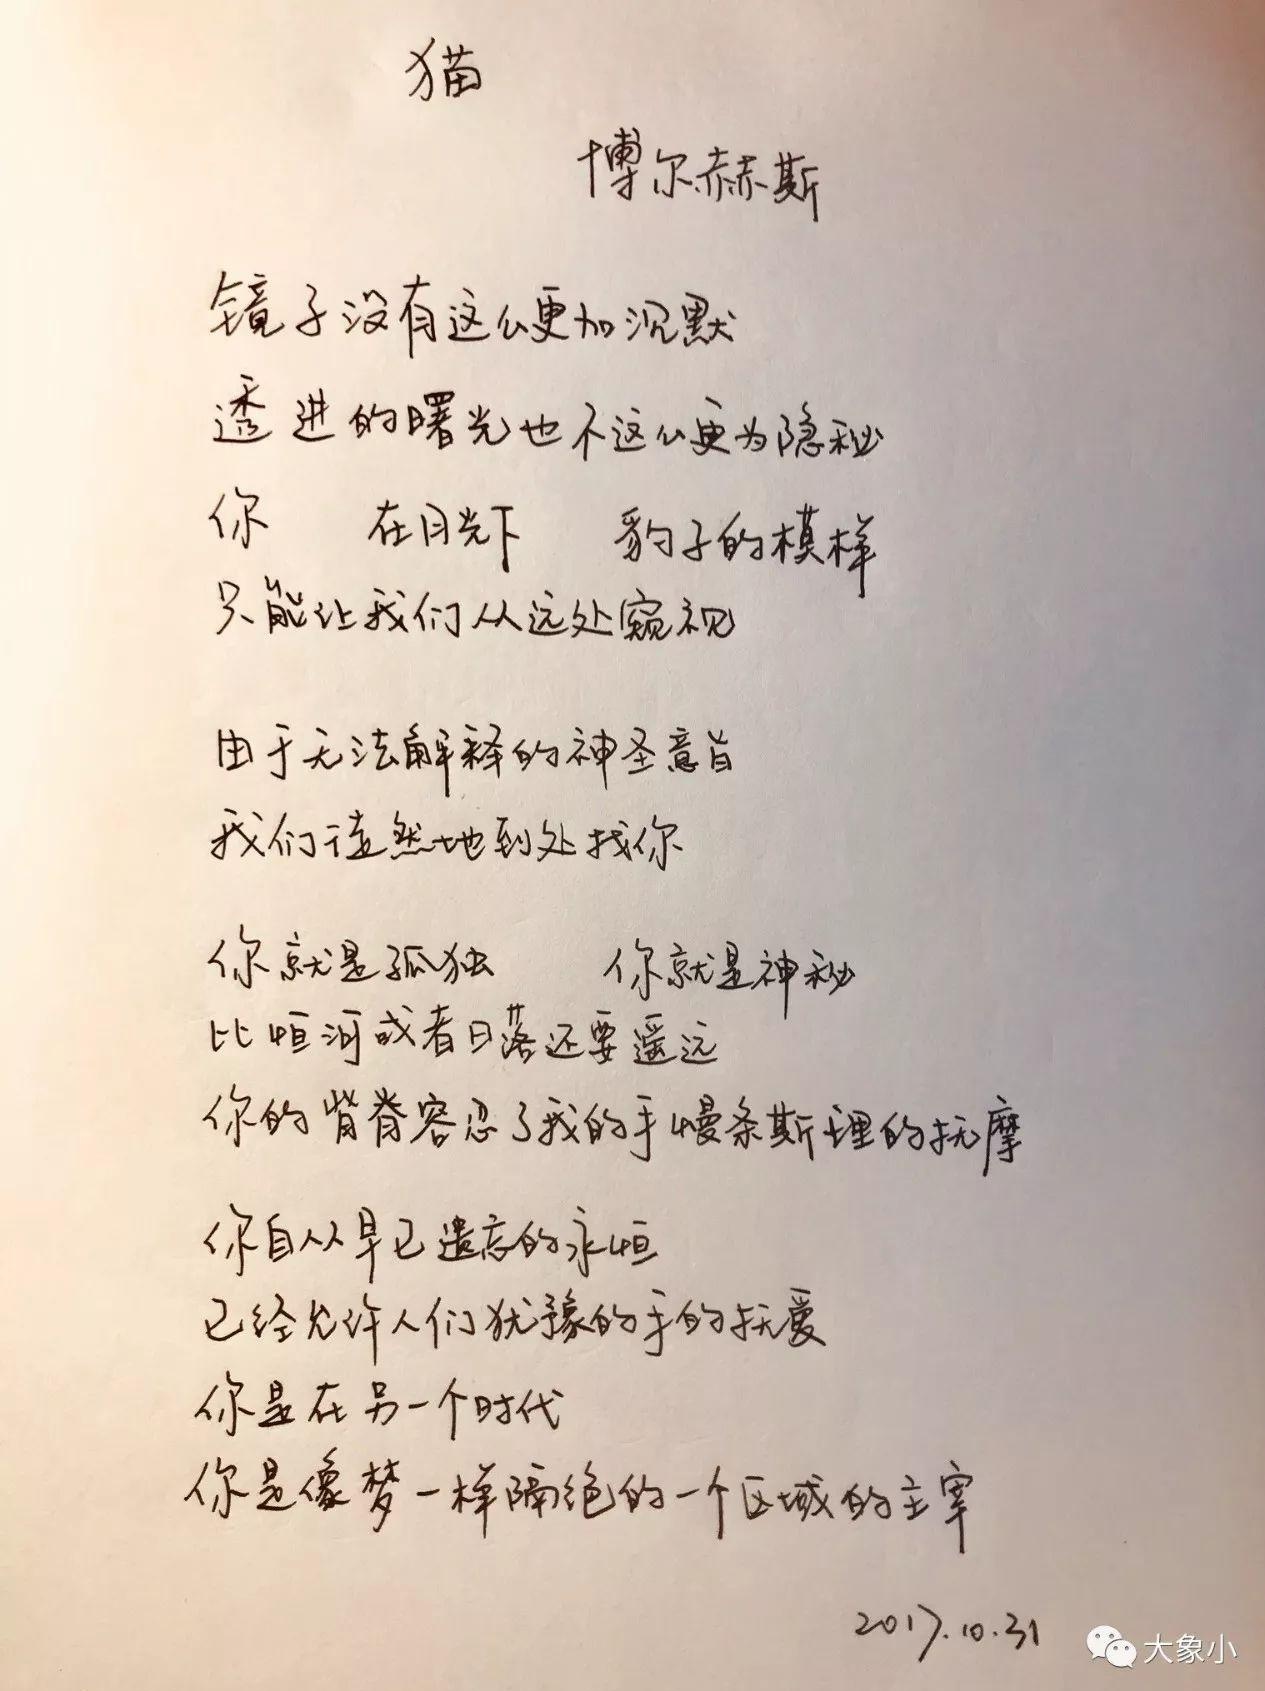 猫
博尔赫斯
镜子没有这么更加沉默
透进的曙光也不这么更为隐秘
你 在月光下 豹子的模样
只能让我们从远处窥视
由于无法解释的神圣意旨
我们徒然地到处找你
你就是孤独 你就是神秘
比恒河或者日落还要遥远
你的脊背容忍了我的手慢条斯理的抚摩
你自从早已遗忘的永恒
已经允许人们犹豫的手的抚爱
你是在另一个时代
你是像梦一样隔绝的一个区域的主宰
2017.10.31
大象小